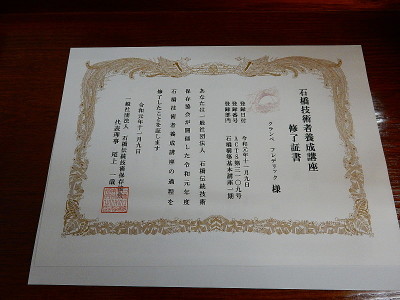 石橋技術者養成講座
修了証書
クランペ フレデリック 様
登録日付 令和元年十一月九日
登録番号
登録部門 石橋構築基本講座一期
あなたは一般社団法人 石橋伝統技術
保存協会が開催した令和元年度
石橋技術者養成講座の過程を
修了したことを証します
令和元年十一月九日
一般社団法人 石橋伝統技術保存協会
代表理事 尾上 一哉